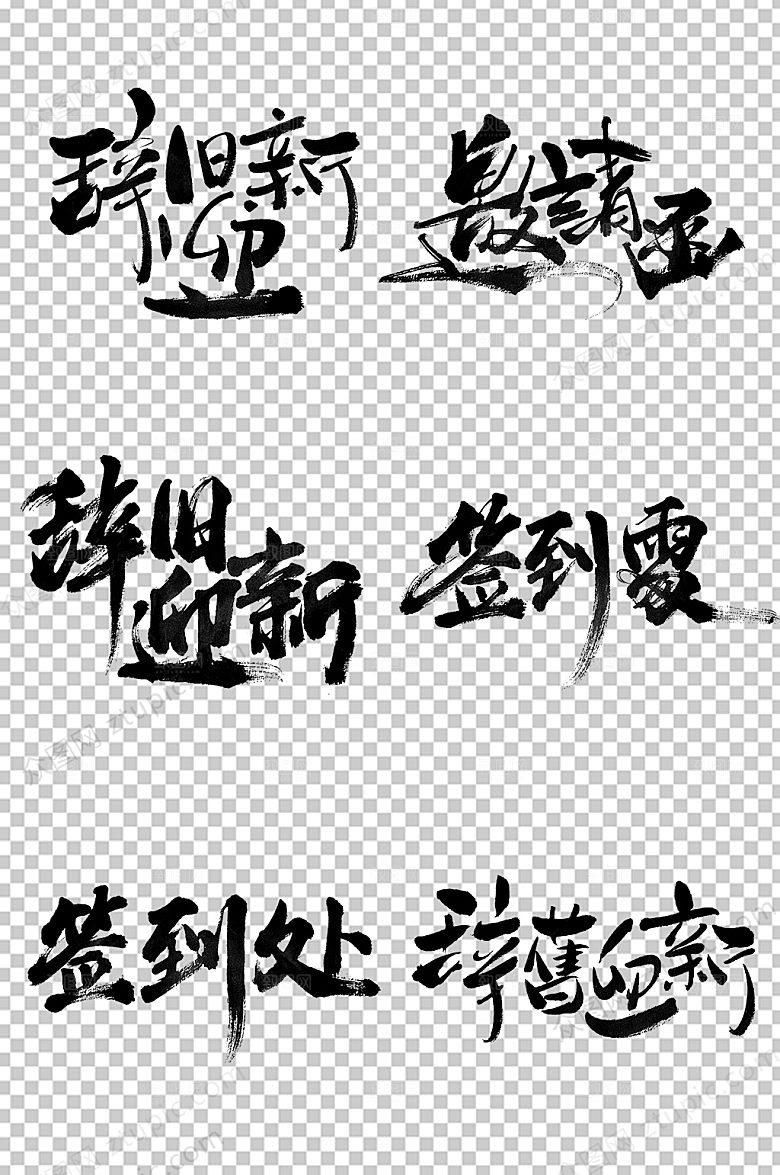 辞旧迎新
邀請函
辞旧迎新
签到處
签到处
辞舊迎新
众图网 ztupic.com